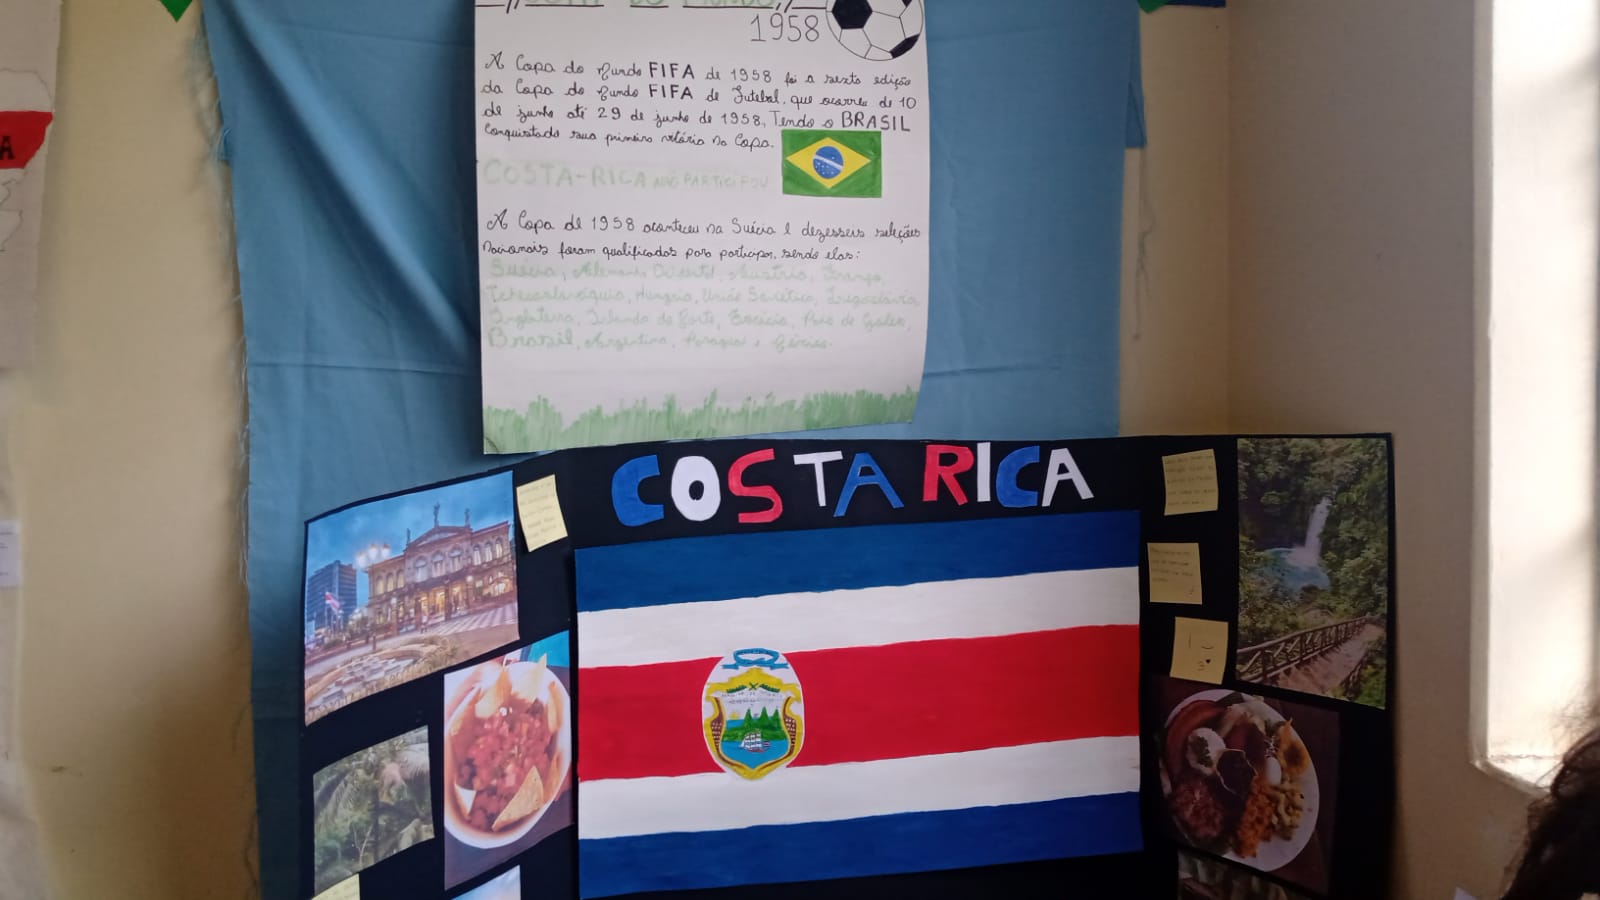 1958
A Copa do Mundo FIFA de 1958 foi a sexta edição
da Copa do Mundo FIFA de Futebol, que ocorreu de 10
de junho até 29 de junho de 1958, Tendo o BRASIL
Conquistado sua primeira vitória na Copa.
COSTA-RICA NÃO PARTICIPOU
A Copa de 1958 aconteceu na Suécia e dezesseis seleções
Nacionais foram qualificadas para participar, sendo elas:
Suécia, Alemanha Ocidental, Áustria, França,
Tchecoslováquia, Hungria, União Soviética, Iugoslávia,
Inglaterra, Irlanda do Norte, Escócia, País de Gales,
Brasil, Argentina, Paraguai e México.
COSTA RICA
A